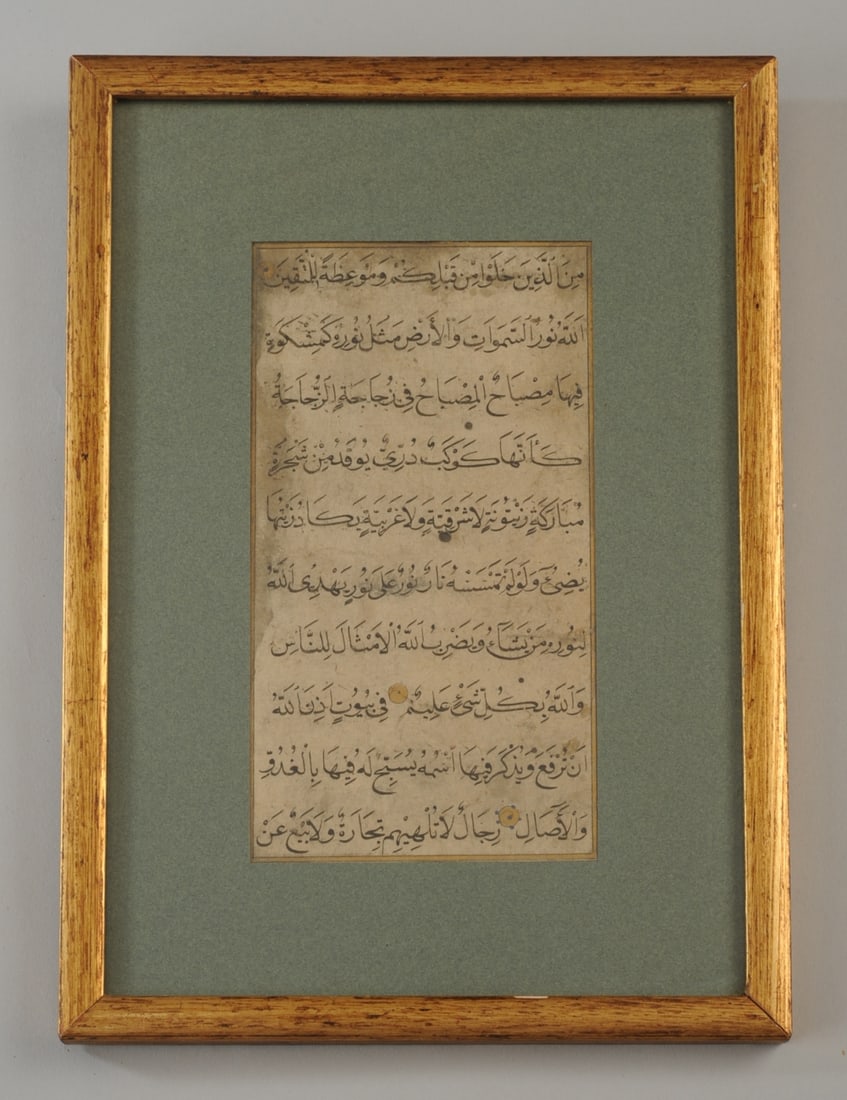 مِنَ الَّذِينَ خَلَوْا مِنْ قَبْلِكُمْ وَمَوْعِظَةً لِلْمُتَّقِينَ
اَللَّهُ نُورُ السَّمَوَاتِ وَالْأَرْضِ مَثَلُ نُورِهِ كَمِشْكَوةٍ
فِيهَا مِصْبَاحٌ الْمِصْبَاحُ فِي زُجَاجَةٍ اَلزُّجَاجَةُ
كَأَنَّهَا كَوْكَبٌ دُرِّيٌّ يُوقَدُ مِنْ شَجَرَةٍ
مُبَارَكَةٍ زَيْتُونَةٍ لَا شَرْقِيَّةٍ وَلَا غَرْبِيَّةٍ يَكَادُ زَيْتُهَا
يُضِيءُ وَلَوْ لَمْ تَمْسَسْهُ نَارٌ نُورٌ عَلَى نُورٍ يَهْدِي اللَّهُ
لِنُورِهِ مَنْ يَشَاءُ وَيَضْرِبُ اللَّهُ الْأَمْثَالَ لِلنَّاسِ
وَاللَّهُ بِكُلِّ شَيْءٍ عَلِيمٌ فِي بُيُوتٍ أَذِنَ اللَّهُ
أَنْ تُرْفَعَ وَيُذْكَرَ فِيهَا اسْمُهُ يُسَبِّحُ لَهُ فِيهَا بِالْغُدُوِّ
وَالْآصَالِ رِجَالٌ لَا تُلْهِيهِمْ تِجَارَةٌ وَلَا بَيْعٌ عَنْ